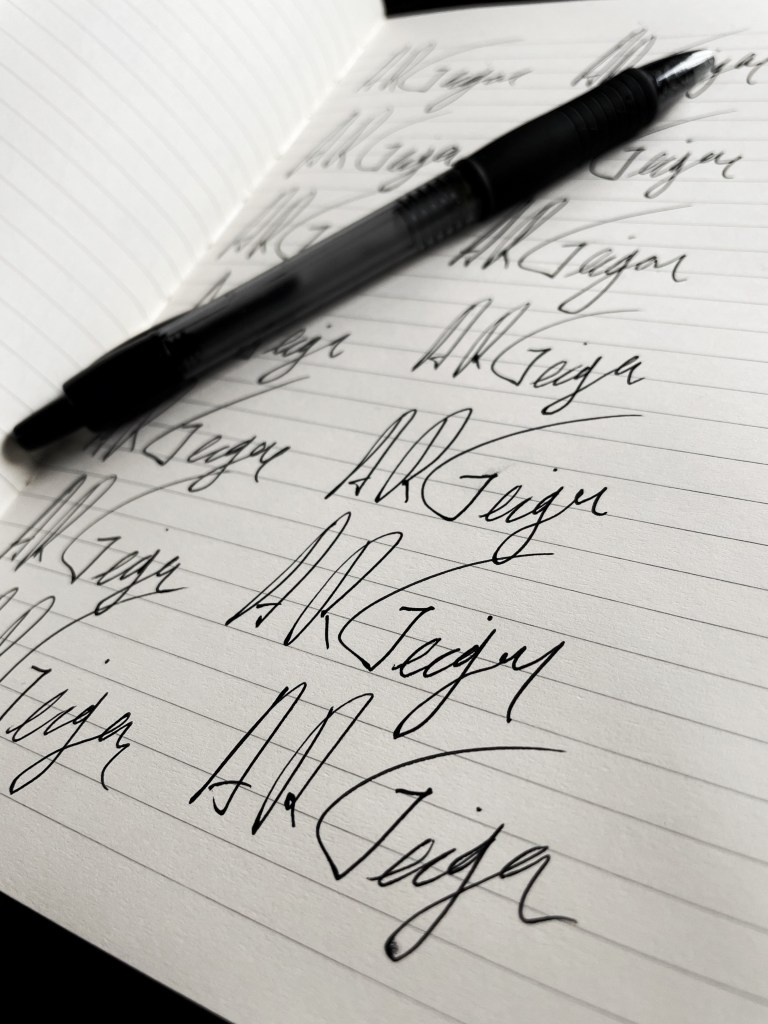 AR Geiger AR Geiger
AR Geiger Geiger
AR AR Geiger
AR Geiger
AR Geiger AR Geiger
AR Geiger AR Geiger
R Geiger AR Geiger